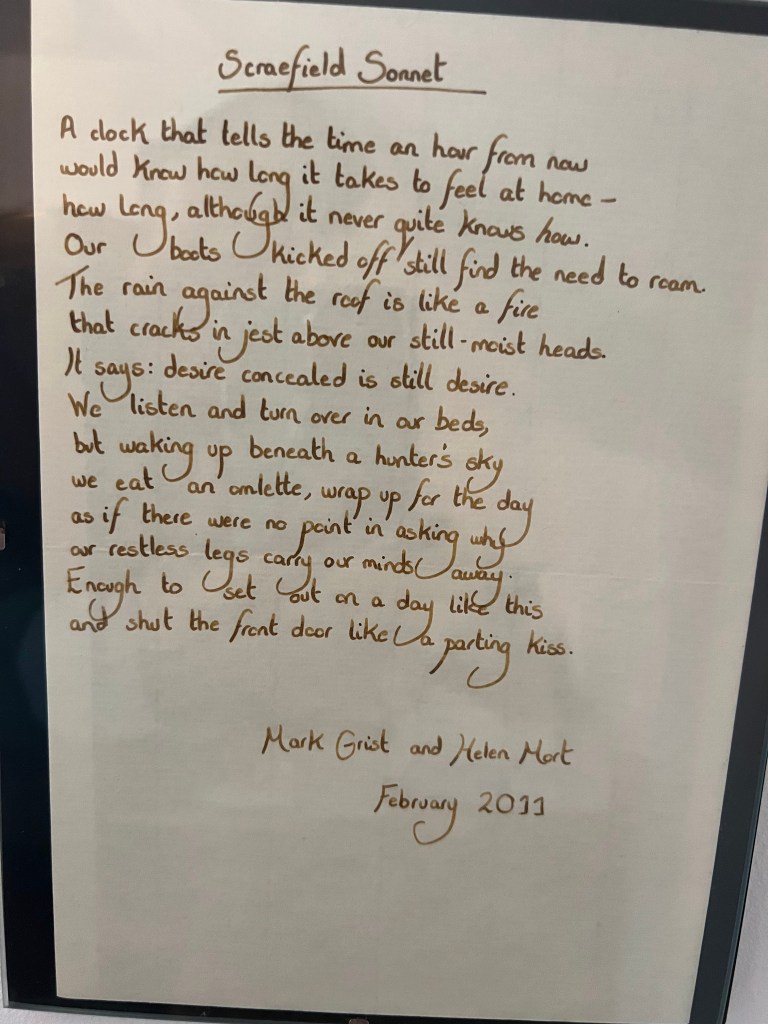 Scraefield Sonnet
A clock that tells the time an hour from now
would know how long it takes to feel at home –
how long, although it never quite knows how.
Our boots kicked off still find the need to roam.
The rain against the roof is like a fire
that cracks in jest above our still-moist heads.
It says: desire concealed is still desire.
We listen and turn over in our beds,
but waking up beneath a hunter's sky
we eat an omlette, wrap up for the day
as if there were no point in asking why
our restless legs carry our minds away.
Enough to set out on a day like this
and shut the front door like a parting kiss.
Mark Grist and Helen Mort
February 2011